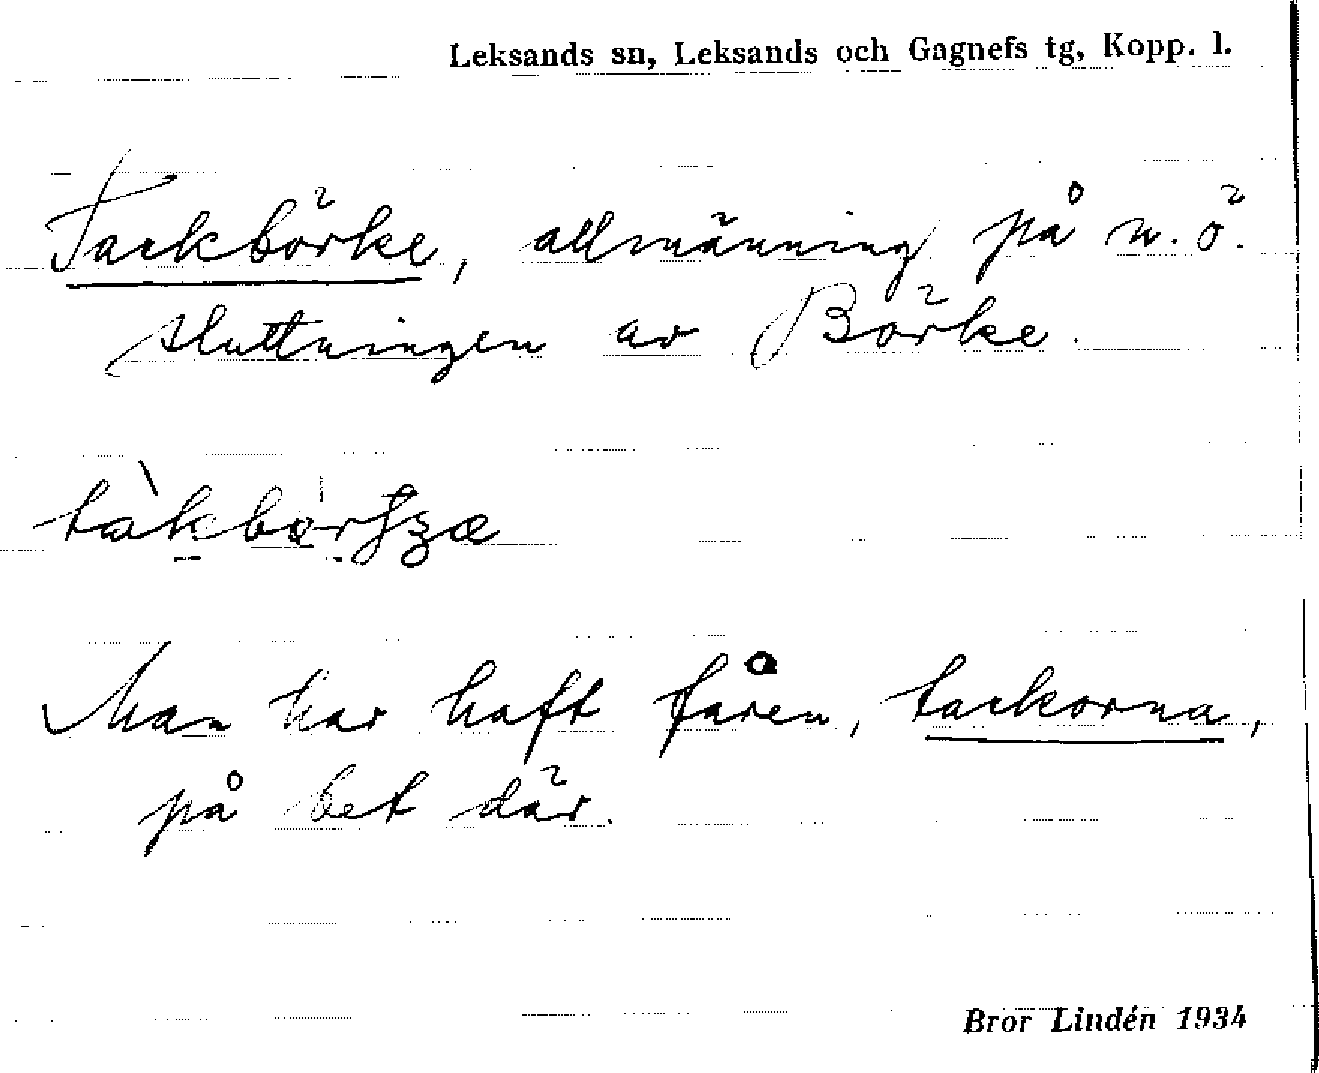 Leksands sn, Leksands och Gagnefs tg, Kopp. l.
Tackbörke, allmänning på n. ö.
sluttningen av Börke.
Man har haft fåren, tackorna,
på bet där.
Bror Lindén 1934